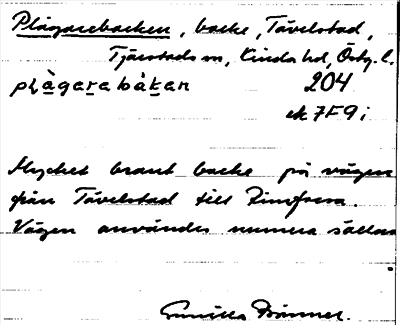 Plågarebacken, backe, Tävelstad,
Tjärstads sn, Kinda hd, Östg. l.
plågarabákan 204
ek 7F9i
Mycket brant backe på vägen
från Tävelstad till Rimforsa.
Vägen användes numera sällan
Gunilla